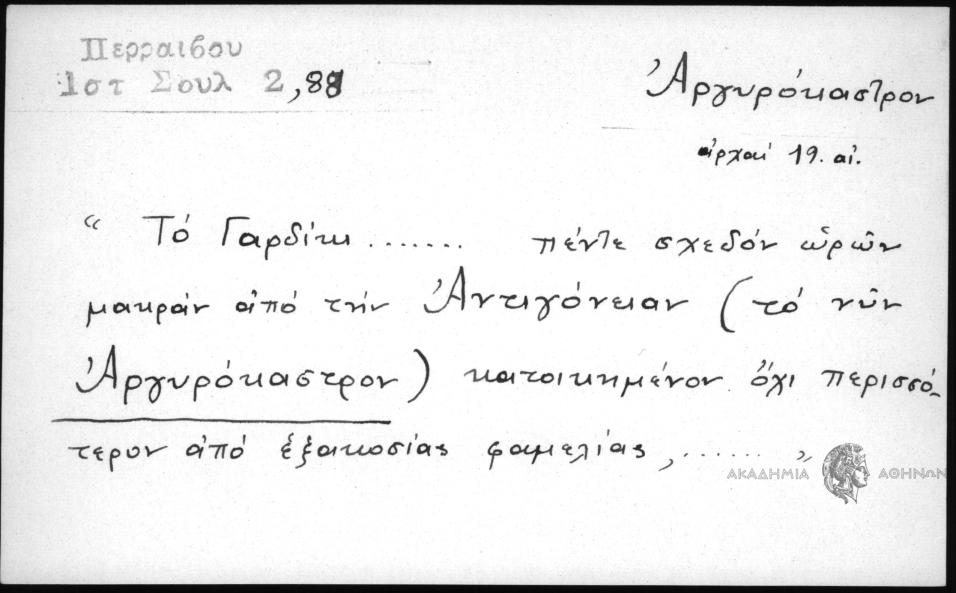 Περραιβου
Ιστ Σουλ 2,88
Ἀργυρόκαστρον
ἀρχαί 19. αἰ.
“ Τό Γαρδίκι ....... πέντε σχεδόν ὡρῶν
μακράν ἀπό τήν Ἀντιγόνειαν (τό νῦν
Ἀργυρόκαστρον) κατοικημένον ὄχι περισσό-
τερον ἀπό ἑξακοσίας φαμελίας, ...... ”
ΑΚΑΔΗΜΙΑ ΑΘΗΝΩΝ